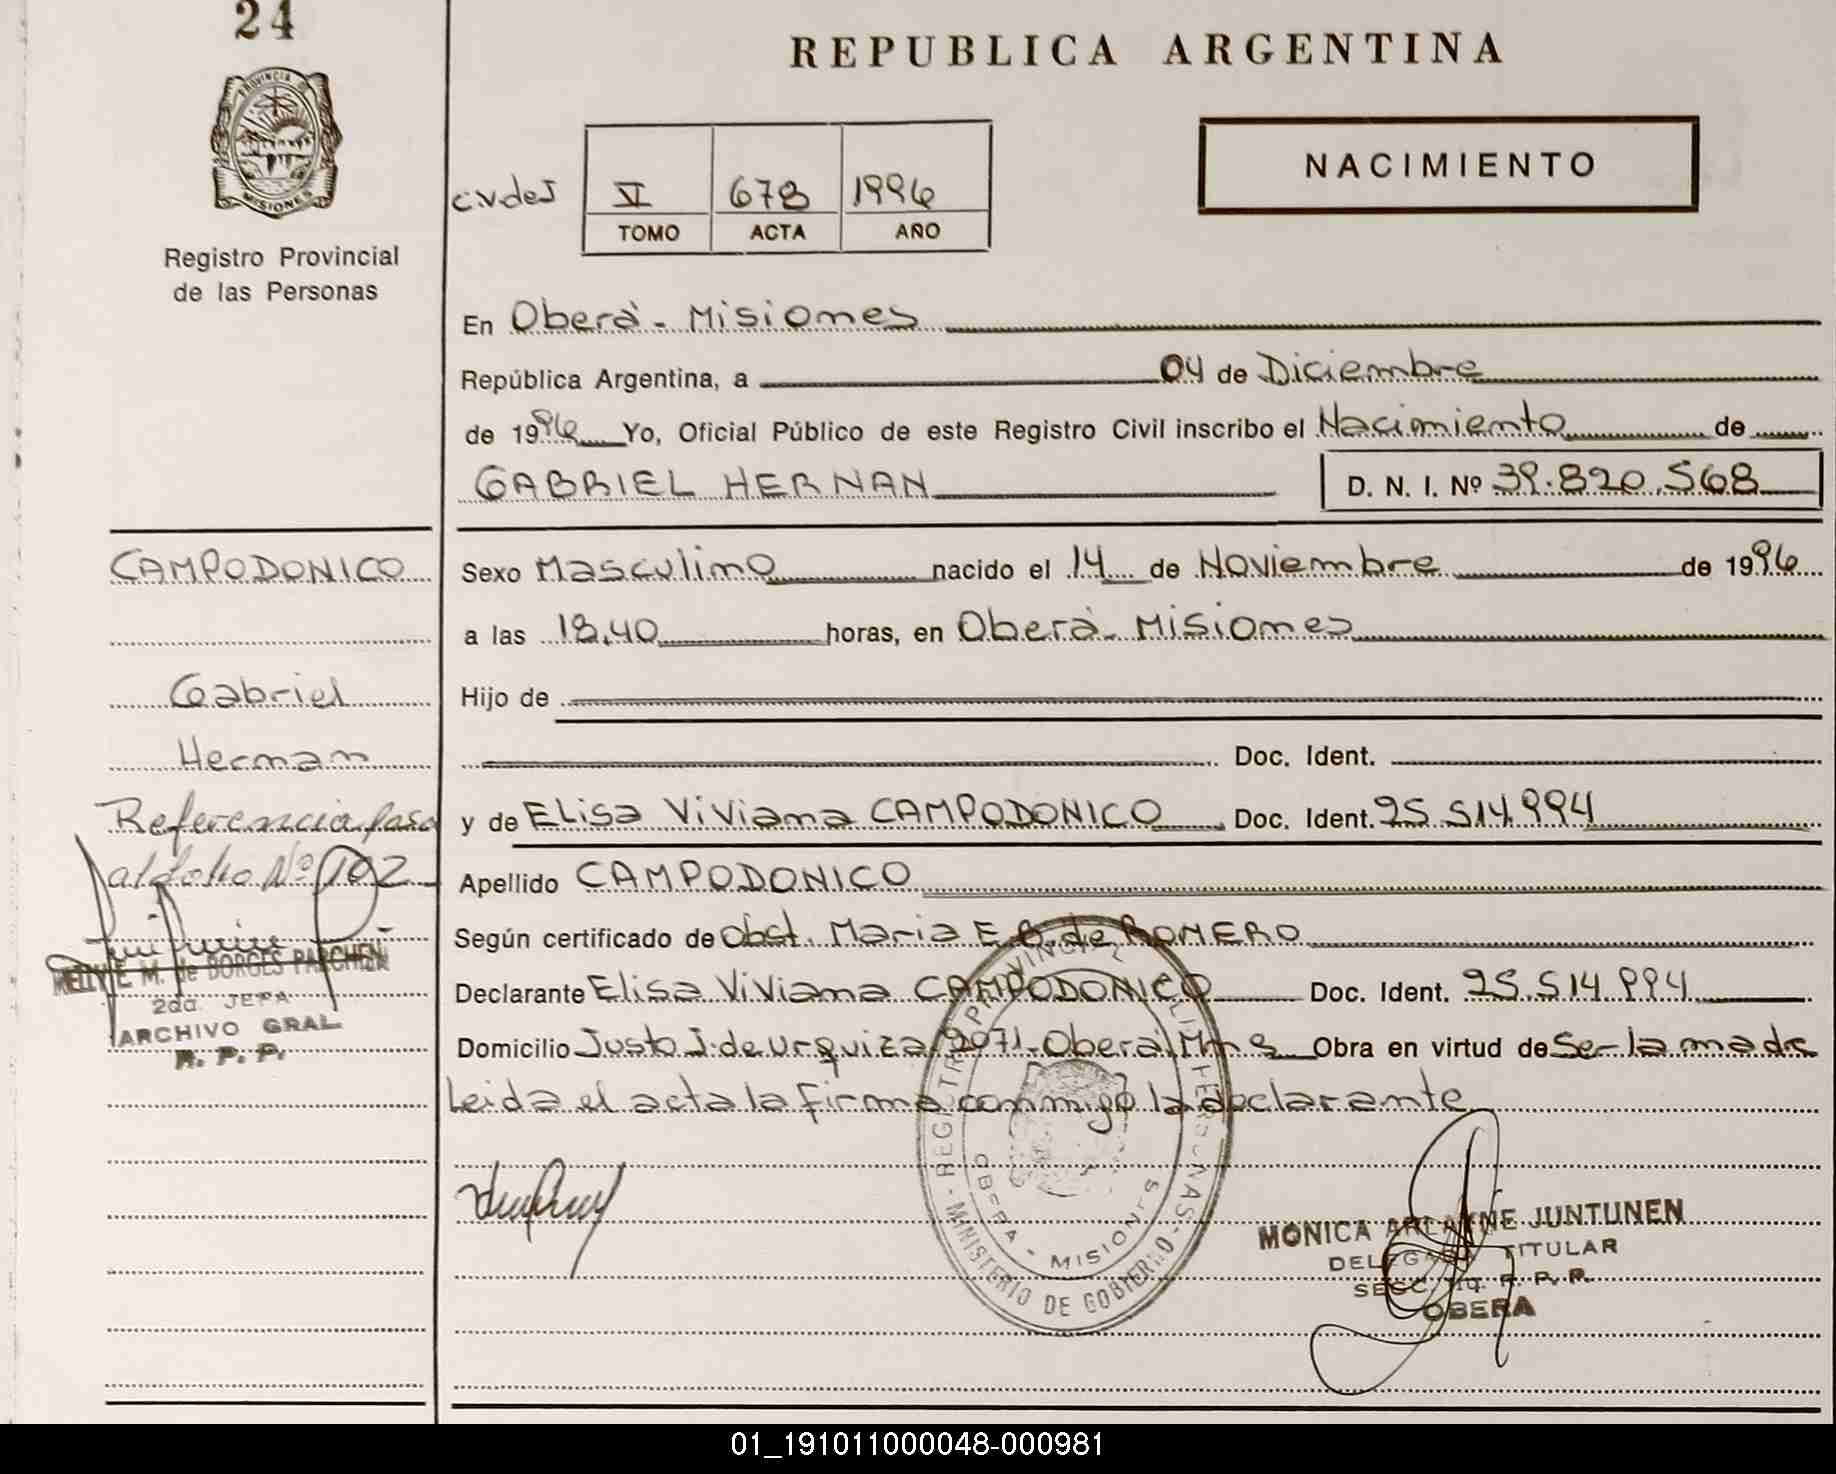 24
PROVINCIA DE
MISIONES
Registro Provincial
de las Personas
REPUBLICA ARGENTINA
NACIMIENTO
c.v.de J
VI 678 1996
TOMO ACTA AÑO
En Oberà - Misiones
República Argentina, a 04 de Diciembre
de 1996 Yo, Oficial Público de este Registro Civil inscribo el Nacimiento de
GABRIEL HERNAN D. N. I. Nº 39.820.568
CAMPODONICO
Gabriel
Hernan
Referencia pasa
al folio Nº 102
NELLY E. M. de BORGES PARCHEN
2da. JEFA
ARCHIVO GRAL.
R. P. P.
Sexo Masculino nacido el 14 de Noviembre de 1996
a las 18,40 horas, en Oberà - Misiones
Hijo de
Doc. Ident.
y de Elisa Viviana CAMPODONICO Doc. Ident. 25.514.994
Apellido CAMPODONICO
Según certificado de Obst. Maria E. B. de ROMERO
Declarante Elisa Viviana CAMPODONICO Doc. Ident. 25.514.994
Domicilio Justo J. de Urquiza 2071 - Oberà, Mnes Obra en virtud de Ser la madre
Leida el acta la firma conmigo la declarante
REGISTRO PROVINCIAL DE LAS PERSONAS - MINISTERIO DE GOBIERNO -
OBERA - MISIONES
MONICA ARLAYNE JUNTUNEN
DELEGADA TITULAR
SECC. R. P. P.
OBERA
01_191011000048-000981